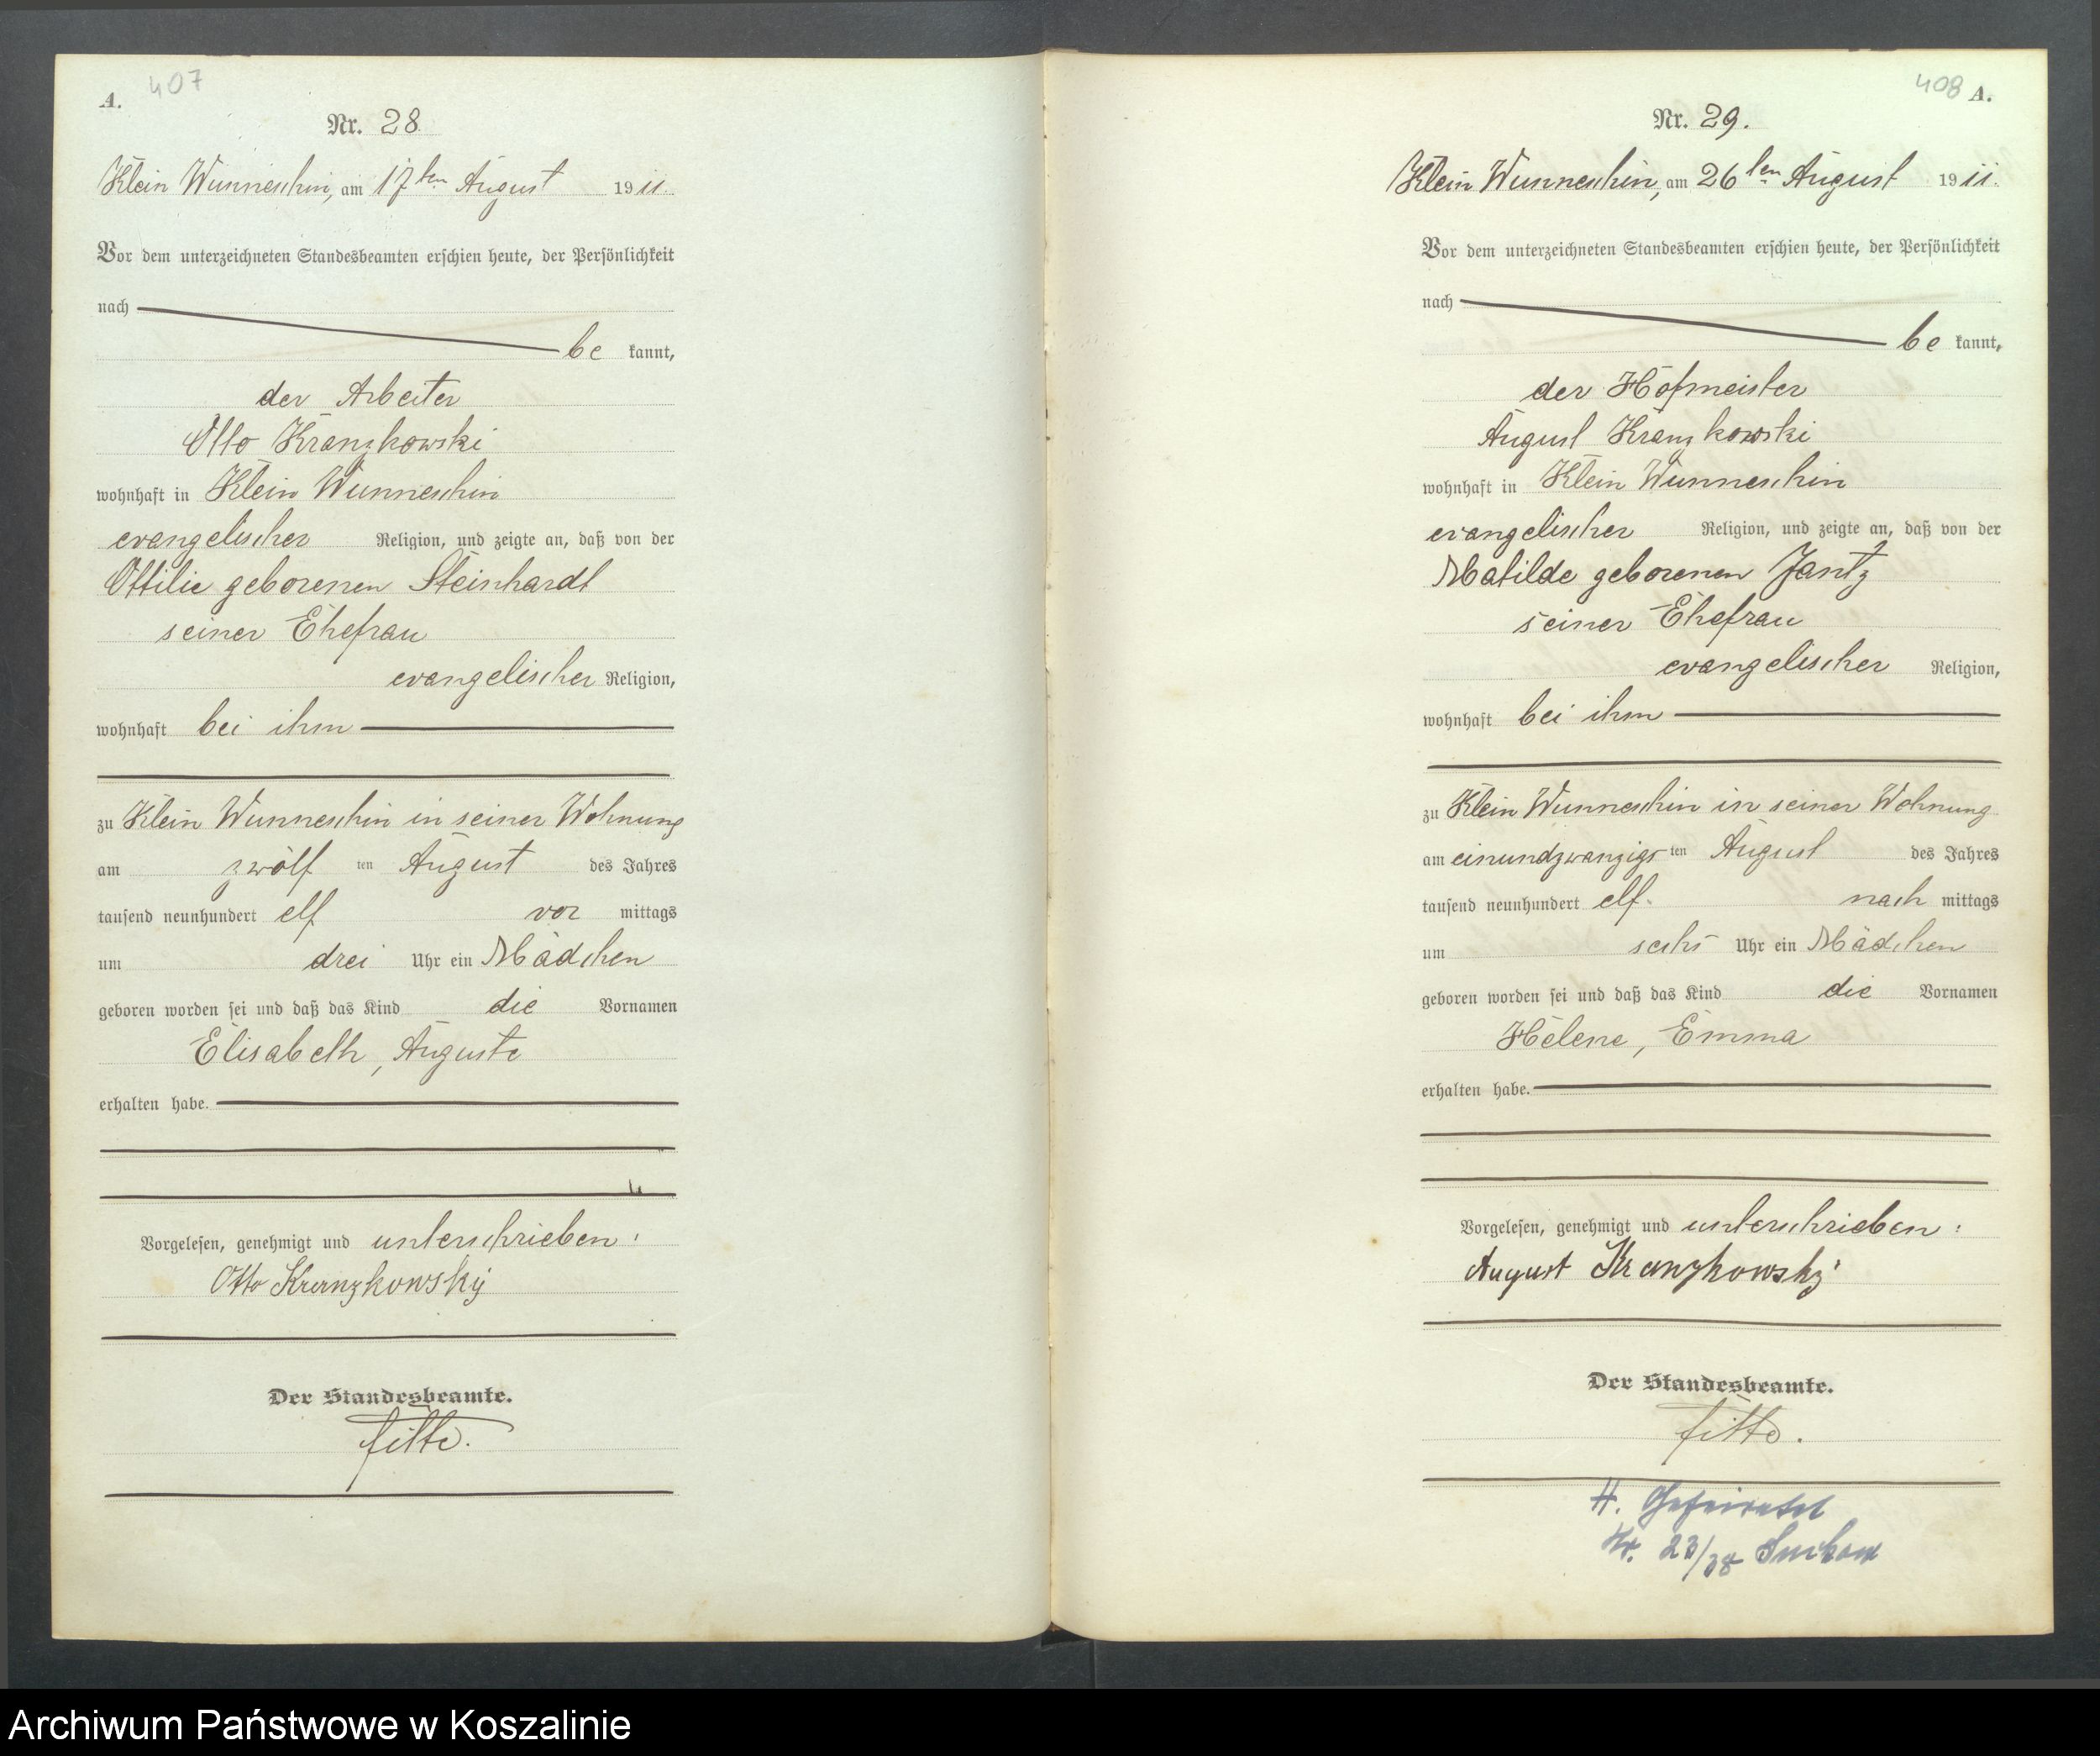 A. 407
Nr. 28
Klein Wunneschin, am 17ten August 1911.
Vor dem unterzeichneten Standesbeamten erschien heute, der Persönlichkeit
nach
be kannt,
der Arbeiter
Otto Kranzkowski
wohnhaft in Klein Wunneschin
evangelischer Religion, und zeigte an, daß von der
Ottilie geborenen Steinhardt
seiner Ehefrau
evangelischer Religion,
wohnhaft bei ihm
zu Klein Wunneschin in seiner Wohnung
am zwölf ten August des Jahres
tausend neunhundert elf vor mittags
um drei Uhr ein Mädchen
geboren worden sei und daß das Kind die Vornamen
Elisabeth, Auguste
erhalten habe.
Vorgelesen, genehmigt und unterschrieben:
Otto Kranzkowsky
Der Standesbeamte.
408 A.
Nr. 29.
Klein Wunneschin, am 26ten August 1911.
Vor dem unterzeichneten Standesbeamten erschien heute, der Persönlichkeit
nach
be kannt,
der Hofmeister
August Kranzkowski
wohnhaft in Klein Wunneschin
evangelischer Religion, und zeigte an, daß von der
Matilde geborenen Jantz
seiner Ehefrau
evangelischer Religion,
wohnhaft bei ihm
zu Klein Wunneschin in seiner Wohnung
am einundzwanzigs ten August des Jahres
tausend neunhundert elf. nach mittags
um sechs Uhr ein Mädchen
geboren worden sei und daß das Kind die Vornamen
Helene, Emma
erhalten habe.
Vorgelesen, genehmigt und unterschrieben:
August Kranzkowsky
Der Standesbeamte.
H. Geheiratet
Nr. 23/38
Archiwum Państwowe w Koszalinie